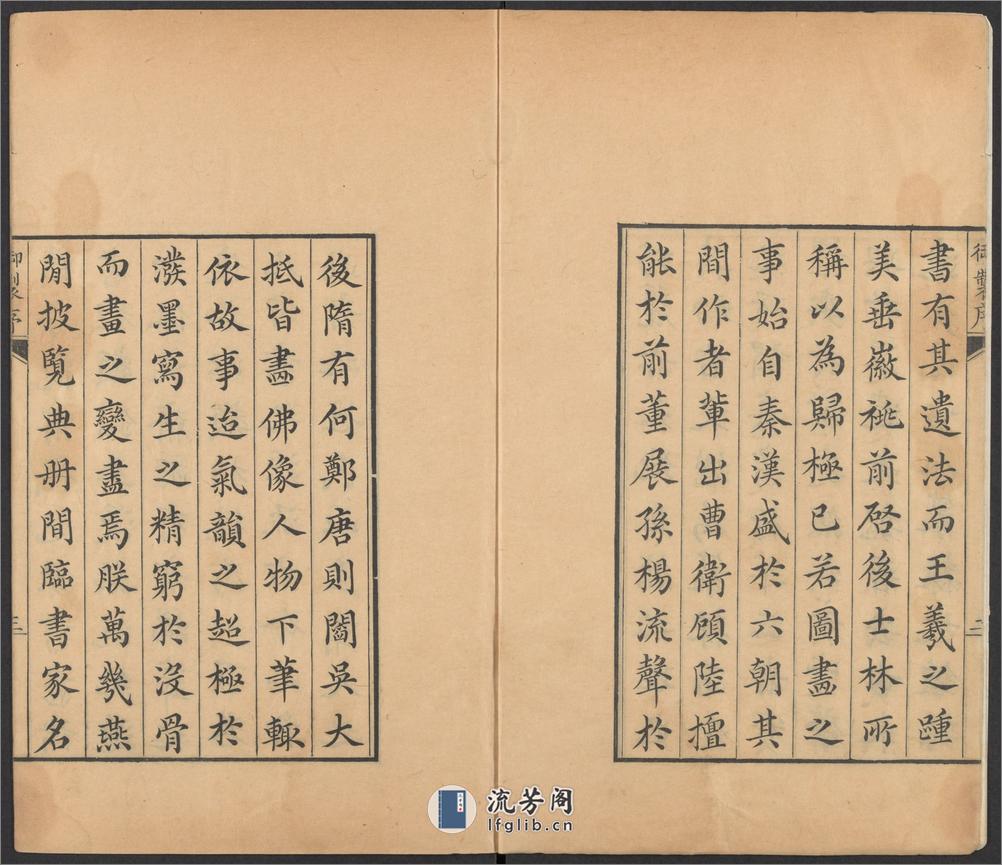 御製序
二
書有其遺法而王羲之踵
美垂徽祧前啓後士林所
稱以為歸極已若圖畫之
事始自秦漢盛於六朝其
間作者輩出曹衛顧陸擅
能於前董展孫楊流聲於
後隋有何鄭唐則閻吳大
抵皆畫佛像人物下筆輒
依故事迨氣韻之超極於
潑墨寫生之精窮於沒骨
而畫之變盡焉朕萬幾燕
閒披覽典册間臨書家名
御製序
三
流芳阁
lfglib.cn